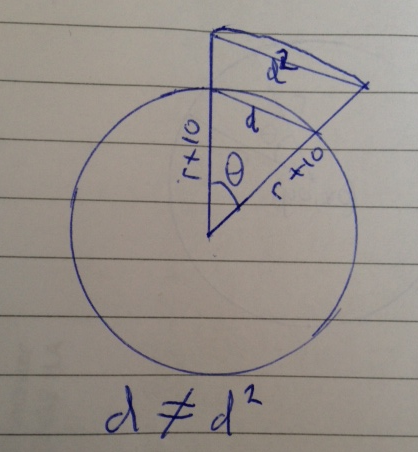 d²
d
r+10
θ
r+10
d ≠ d²